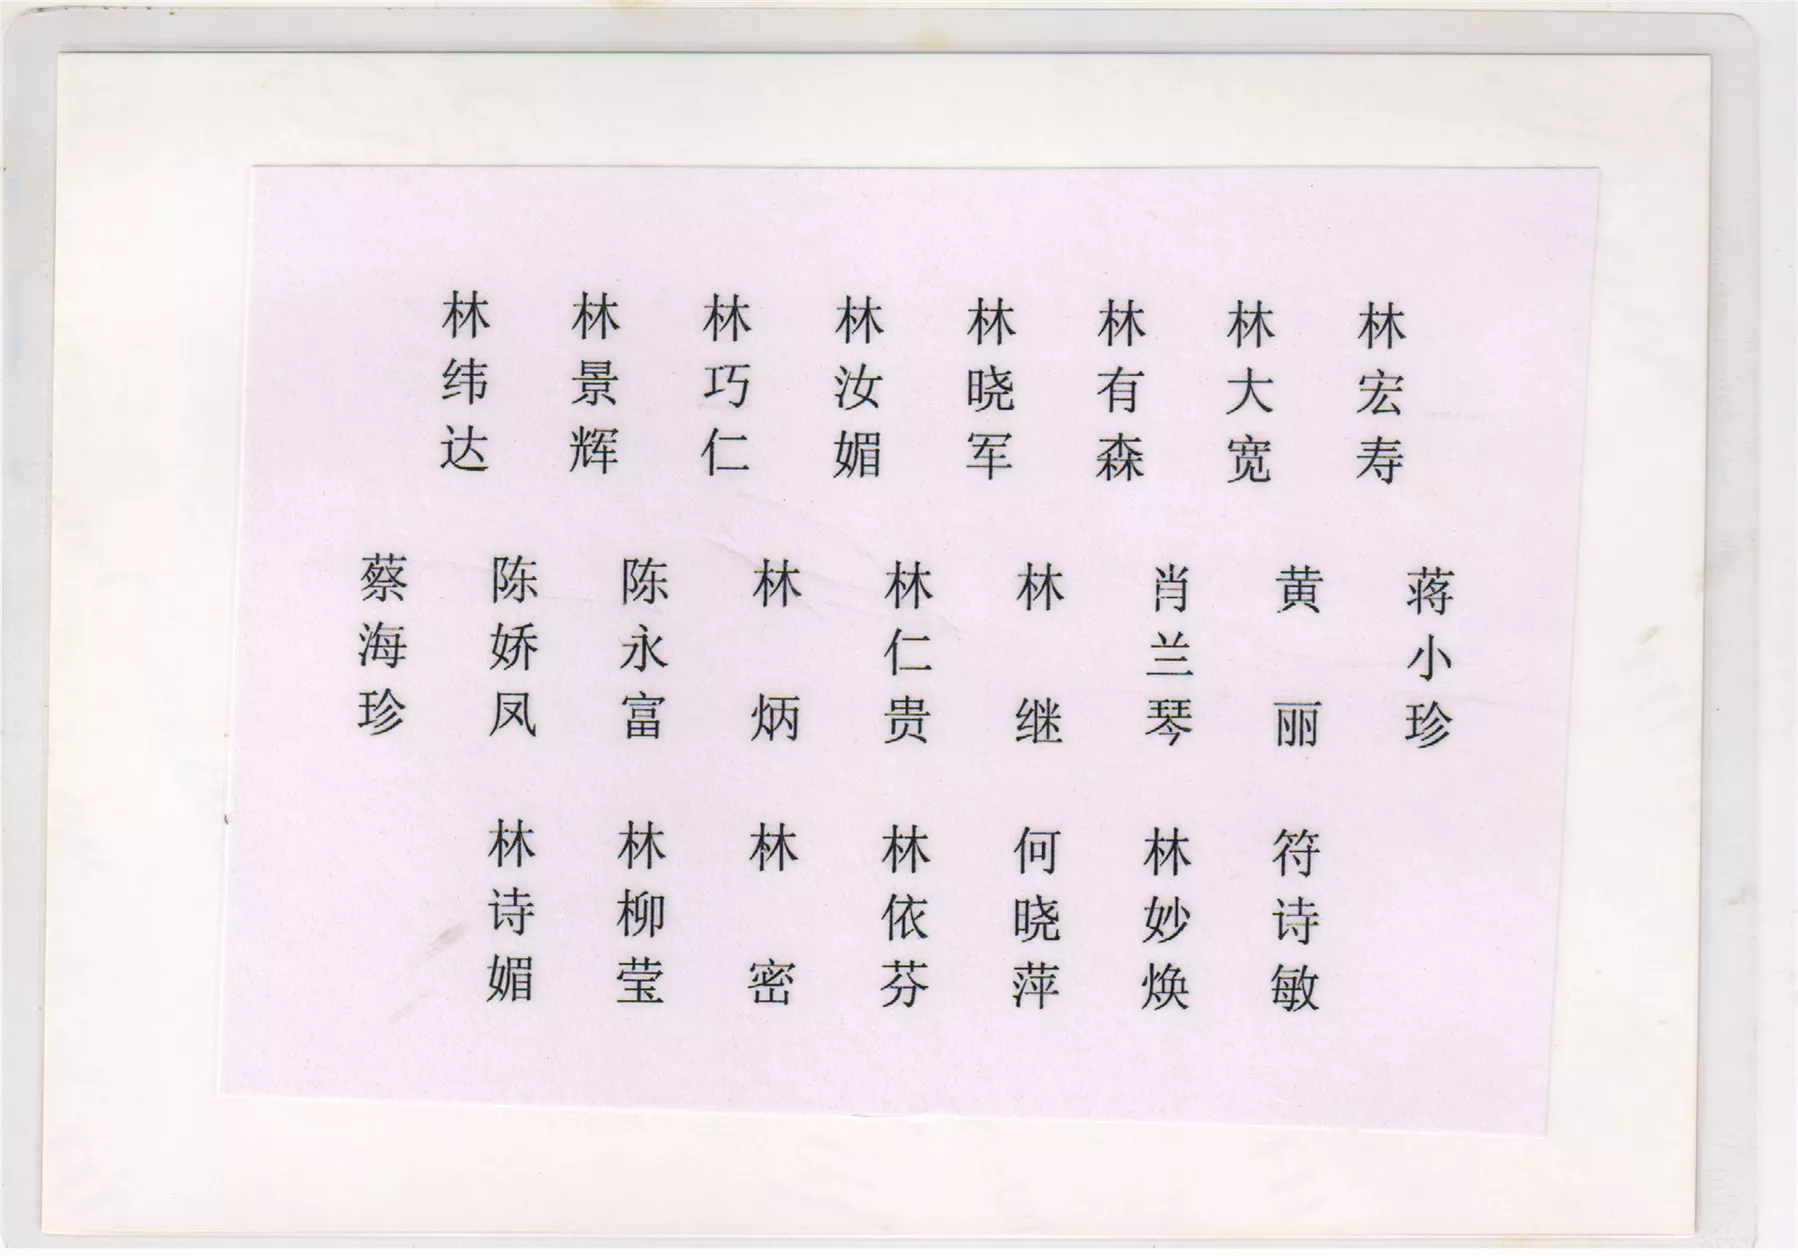 林纬达
林景辉
林巧仁
林汝媚
林晓军
林有森
林大宽
林宏寿
蔡海珍
陈娇凤
陈永富
林炳
林仁贵
林继
肖兰琴
黄丽
蒋小珍
林诗媚
林柳莹
林密
林依芬
何晓萍
林妙焕
符诗敏